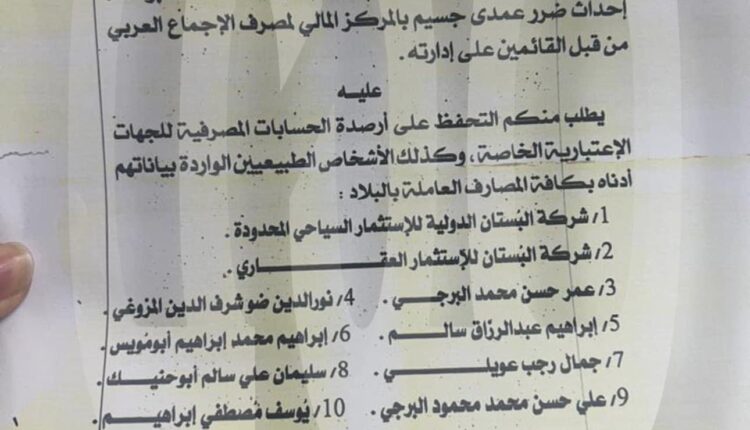 إحداث ضرر عمدى جسيم بالمركز المالي لمصرف الإجماع العربي
من قبل القائمين على إدارته .
عليه
يطلب منكم التحفظ على أرصدة الحسابات المصرفية للجهات
الإعتبارية الخاصة، وكذلك الأشخاص الطبيعيين الواردة بياناتهم
أدناه بكافة المصارف العاملة بالبلاد :
1/ شركة البُستان الدولية للإستثمار السياحي المحدودة .
2/ شركة البُستان للإستثمار العقاري .
3/ عمر حسن محمد البرجي . 4/ نورالدين ضو شرف الدين المزوغي .
5/ إبراهيم عبدالرزّاق سالم . 6/ إبراهيم محمد إبراهيم أبومُويس .
7/ جمال رجب عويلي . 8/ سليمان علي سالم أبوحنيك .
9/ علي حسن محمد محمود البرجي . 10/ يُوسف مُصطفي إبراهيم .